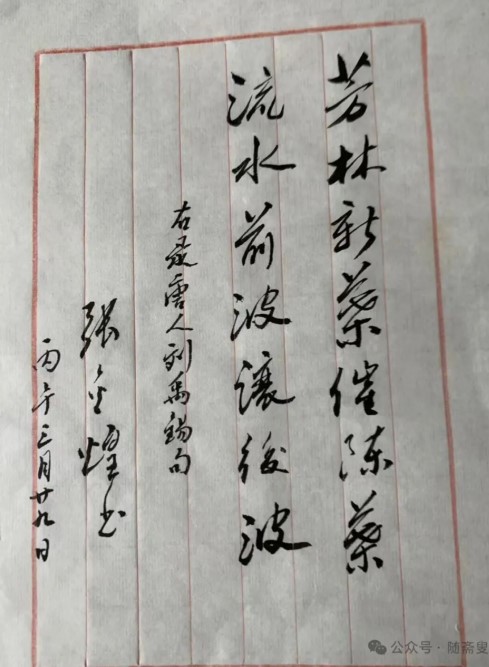 芳林新葉催陈葉
流水前波讓後波
右录唐人刘禹锡句
張金煌书
丙午三月廿九日
公众号·随斋叟